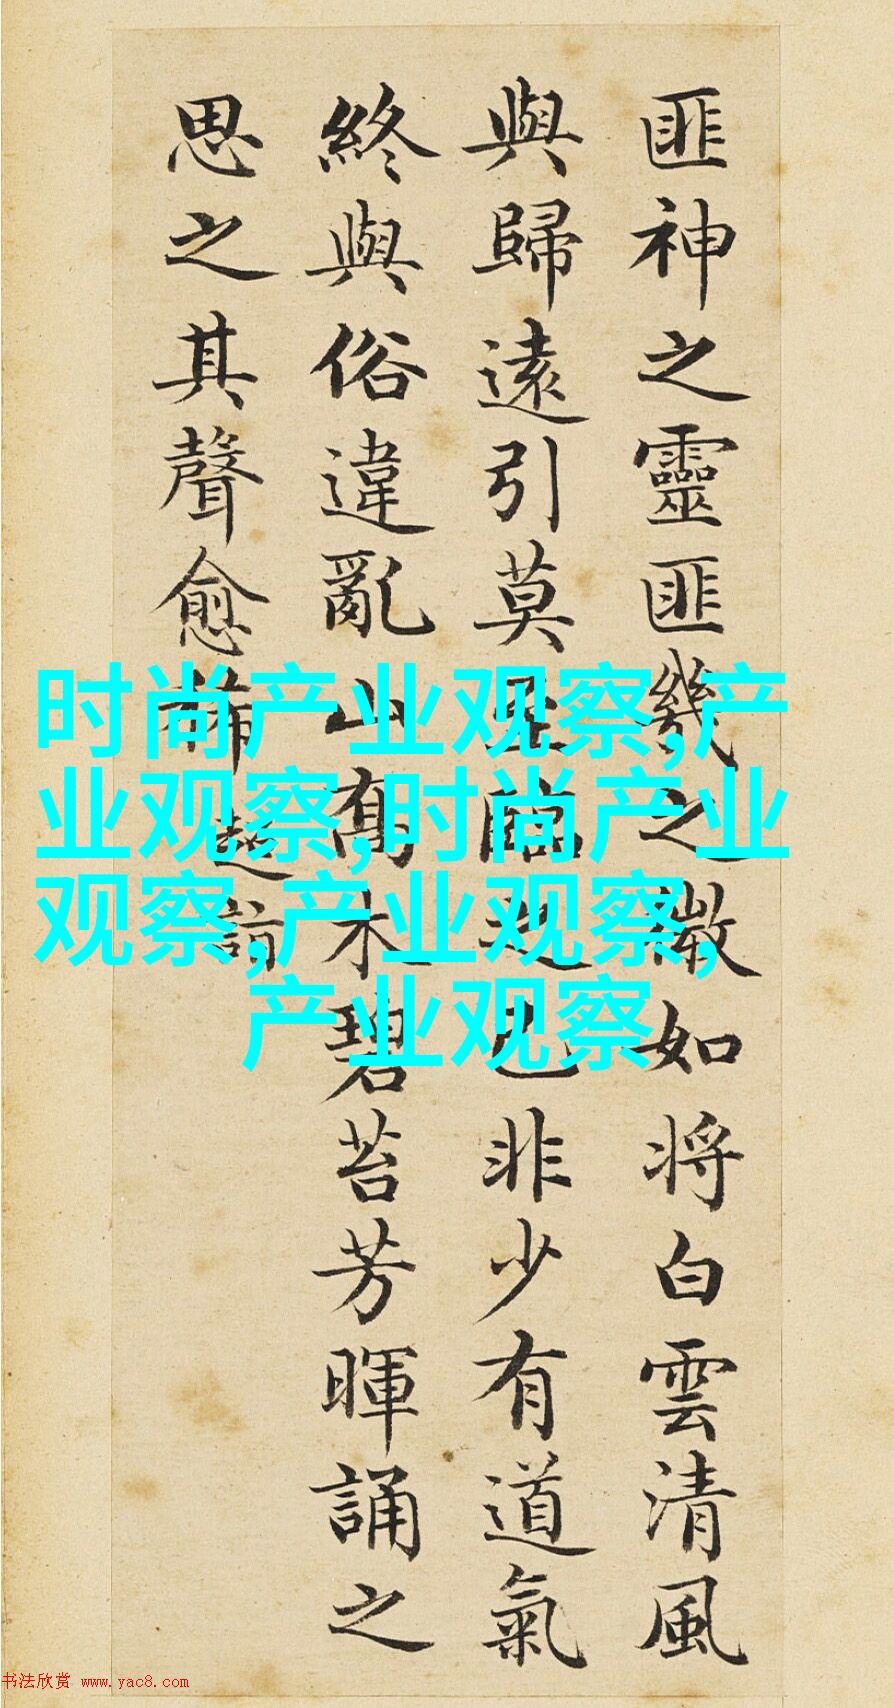 匪神之靈匪幾之微如将白雲清風
與歸遠引莫至臨之已非少有道氣
終與俗違亂山高木碧苔芳暉誦之
思之其聲愈稀 超詣
时尚产业观察,产
业观察,时尚产业
观察,产业观察,
产业观察
书法欣赏 www.yac8.com